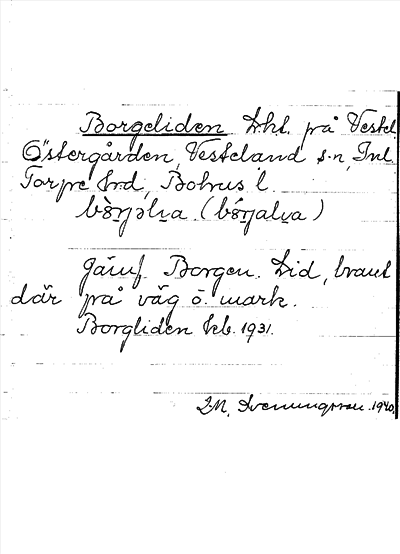 Borgeliden Lht. på Vestel
Östergården, Vesteland s-n, Inl.
Torpe hrd, Bohus l.
Jämf. Borgen. Lid, brant
där på väg o. mark.
Borgliden kb. 1931.
Svenungsson 1940.